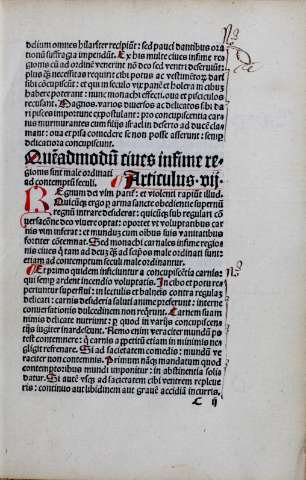 delium omnes hilariter recipiūt: sed pauci dantibus ora
tionū suffragia impendūt. Ex his multe ciues infime re
gionis cū ad ordinē venerint nō deo sed ventri deseruiūt:
plus qȝ necessitas requirit cibi potus ac vestimētorȝ dari
sibi cōcupiscūt: et qui in seculo vix panē et holera in cibuȝ
habere poterant: nunc monachi effecti, oua et pisciculos
recusant. Magnos, varios diuersos ac delicatos sibi da
ri pisces importune expostulant: pro concupiscentia car
nis murmurantes cum filijs israel in deserto ad ducē cla
mant: oua et pisa comedere se non posse asserunt: semper
delicatiora concupiscunt.
Quēadmodū ciues infime re-
gionis sint male ordinati
ad contemptū seculi. Articulus .vij.
REgnum dei vim patit: et violenti rapiunt illud.
Quicūqȝ ergo per arma sancte obedientie supernū
regnū intrare desiderat: quicūqȝ sub regulari cō
uersacōne deo viuere optat: oportet vt voluptatibus car
nis vim inferat: et mundum cum oībus suis vanitatibus
fortiter cōtemnat. Sed monachi carnales infime regio
nis ciues qȝ tam ad deuȝ qȝ ad seipōs male ordinati sunt:
etiam ad contemptum seculi male ordinantur.
Et primo quidem inficiuntur a concupiscētia carnis:
qui sempȝ ardent incendio voluptatis. In cibo et potu re
periuntur superflui: in lectulis et balneis contra regulaȝ
delicati: carnis desideria saluti anime preferunt: interne
conuersationis dulcedinem non reqūrunt. Carnem suam
nimis delicate nutriunt: per quod in varijs concupiscen
tijs iugiter inardescunt. Nemo enim veraciter mundū po
test contemnere: qui carnis appetitū etiam in minimis ne
gligit refrenare. Si ad sacietatem comedio: mundū ve
raciter non contemnis. Primum nāqȝ mandatum quod
contemptoribus mundi imponitur: in abstinentia solis
datur. Si autē vsqȝ ad sacietatem cibi ventrem repleue
ris: continuo aut libidinem aut grauē accidiā incurris.
C ij